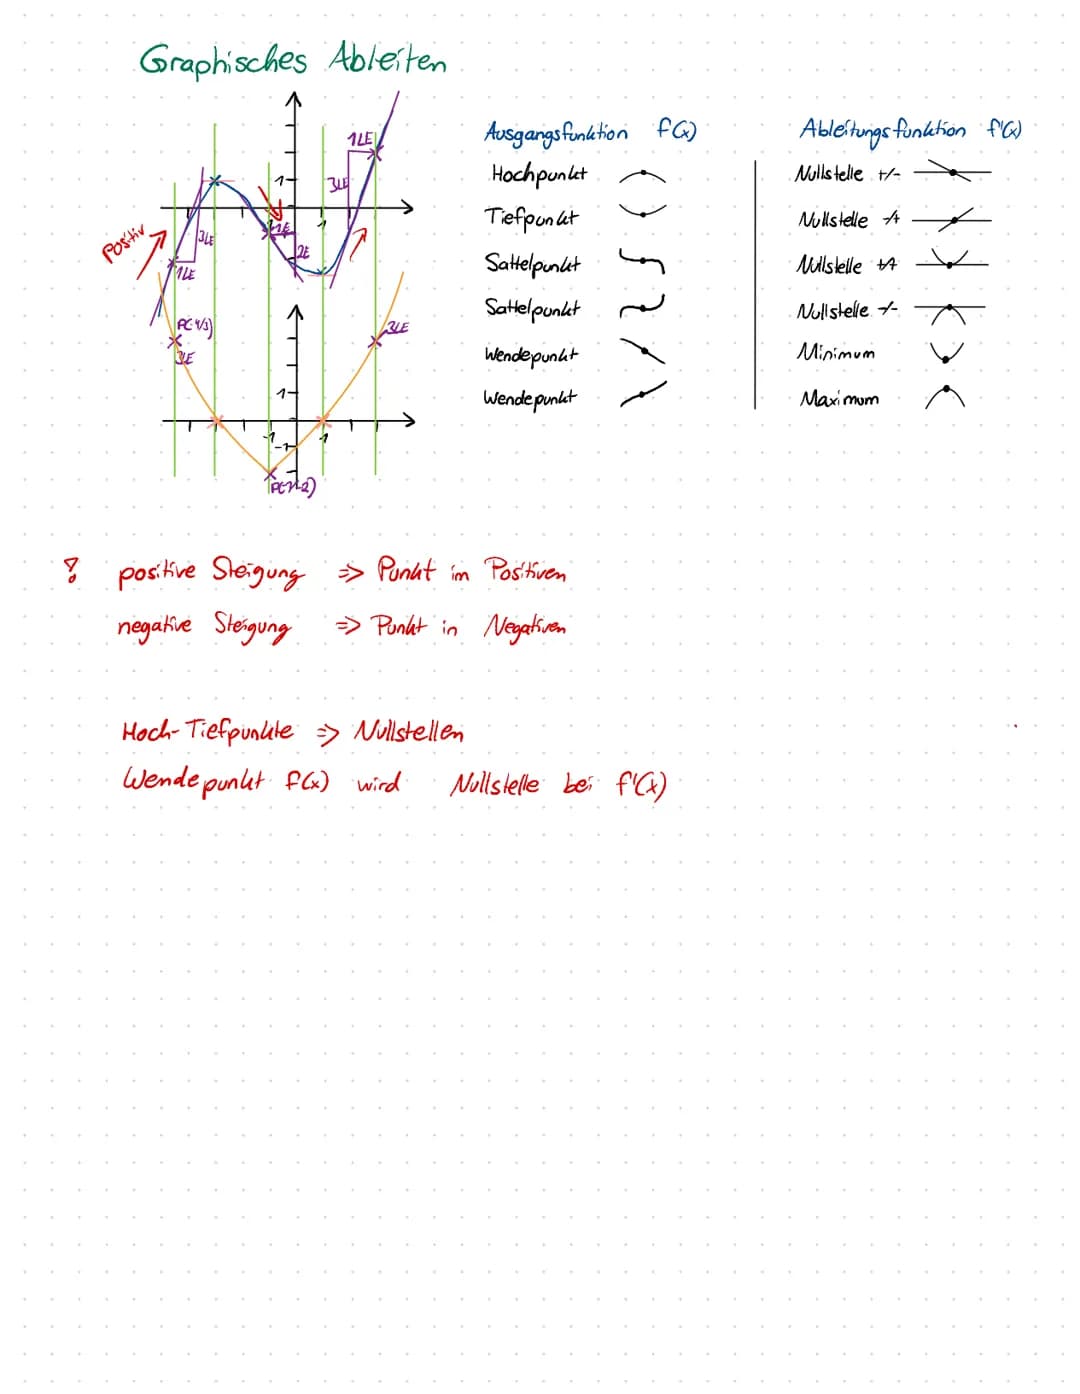 Graphisches Ableiten
Ausgangsfunktion f(x)
Ableitungsfunktion f'(x)
Hochpunkt
Nullstelle +/-
Tiefpunkt
Nullstelle -/+
Sattelpunkt
Nullstelle +/+
Sattelpunkt
Nullstelle -/-
Wendepunkt
Minimum
Wendepunkt
Maximum
1LE
3LE
1
1
Positiv
3LE
1LE
1LE
2E
P(-4/3)
3LE
3LE
1
-1
1
-1
P(-1/-2)
! positive Steigung => Punkt im Positiven
negative Steigung => Punkt in Negativen
Hoch-Tiefpunkte => Nullstellen
Wendepunkt f(x) wird Nullstelle bei f'(x)